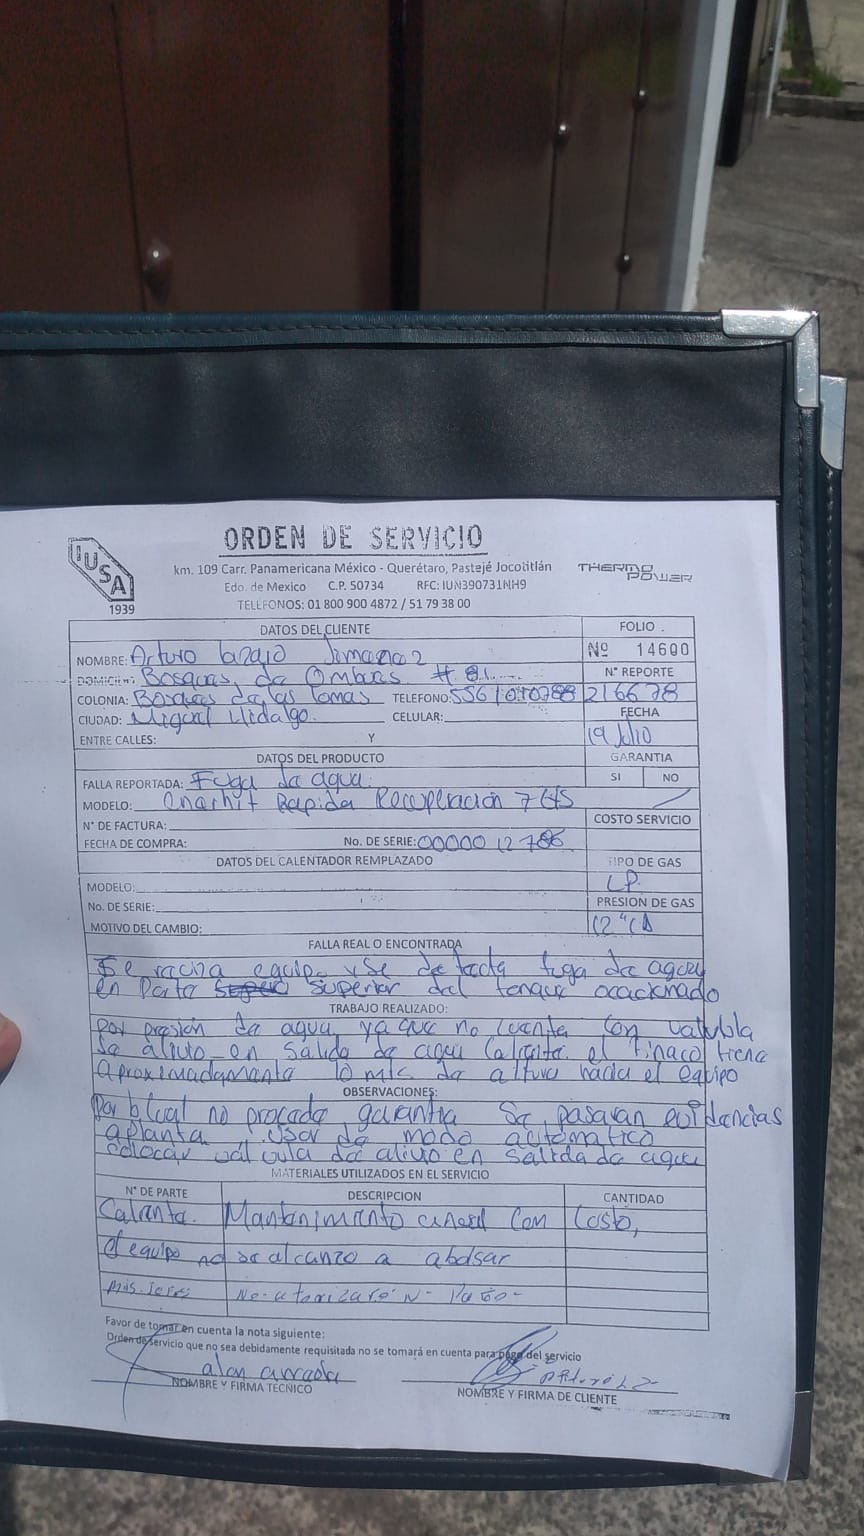 ORDEN DE SERVICIO
IUSA
1939
km. 109 Carr. Panamericana México - Querétaro, Pastejé Jocotitlán
Edo. de Mexico C.P. 50734 RFC: IUN390731NH9
TELÉFONOS: 01 800 900 4872 / 51 79 38 00
THERMO POWER
DATOS DEL CLIENTE
FOLIO
NOMBRE: Arturo
Nº 14600
DOMICILIO: Bosques de Ombues #
N° REPORTE
COLONIA: Bosques de las lomas TELEFONO:
216678
CIUDAD: Miguel Hidalgo. CELULAR:
FECHA
ENTRE CALLES: Y
19 Julio
DATOS DEL PRODUCTO
GARANTIA
FALLA REPORTADA: Fuga de agua.
SI NO
MODELO: Rapida Recuperacion 7
N° DE FACTURA:
COSTO SERVICIO
FECHA DE COMPRA: No. DE SERIE: 00000 12786
DATOS DEL CALENTADOR REMPLAZADO
TIPO DE GAS
MODELO:
LP.
No. DE SERIE:
PRESION DE GAS
MOTIVO DEL CAMBIO:
FALLA REAL O ENCONTRADA
Se equipo y se detecta fuga de agua
en parte superior del tanque ocacionado
TRABAJO REALIZADO:
por presión de agua, ya que no cuenta con valvula
de alivio en salida de agua Caliente. el tinaco tiene
aproximadamente 10 mts. de altura hacia el equipo
OBSERVACIONES:
Por lo cual no procede garantia Se pasaran evidencias
a planta. Usar de modo automatico
colocar valvula de alivio en salida de agua
MATERIALES UTILIZADOS EN EL SERVICIO
N° DE PARTE DESCRIPCION CANTIDAD
Calienta. Mantenimiento con Costo,
el equipo no se alcanzo a
No
Favor de tomar en cuenta la nota siguiente:
Orden de servicio que no sea debidamente requisitada no se tomará en cuenta para pago del servicio
alan
NOMBRE Y FIRMA TECNICO
NOMBRE Y FIRMA DE CLIENTE